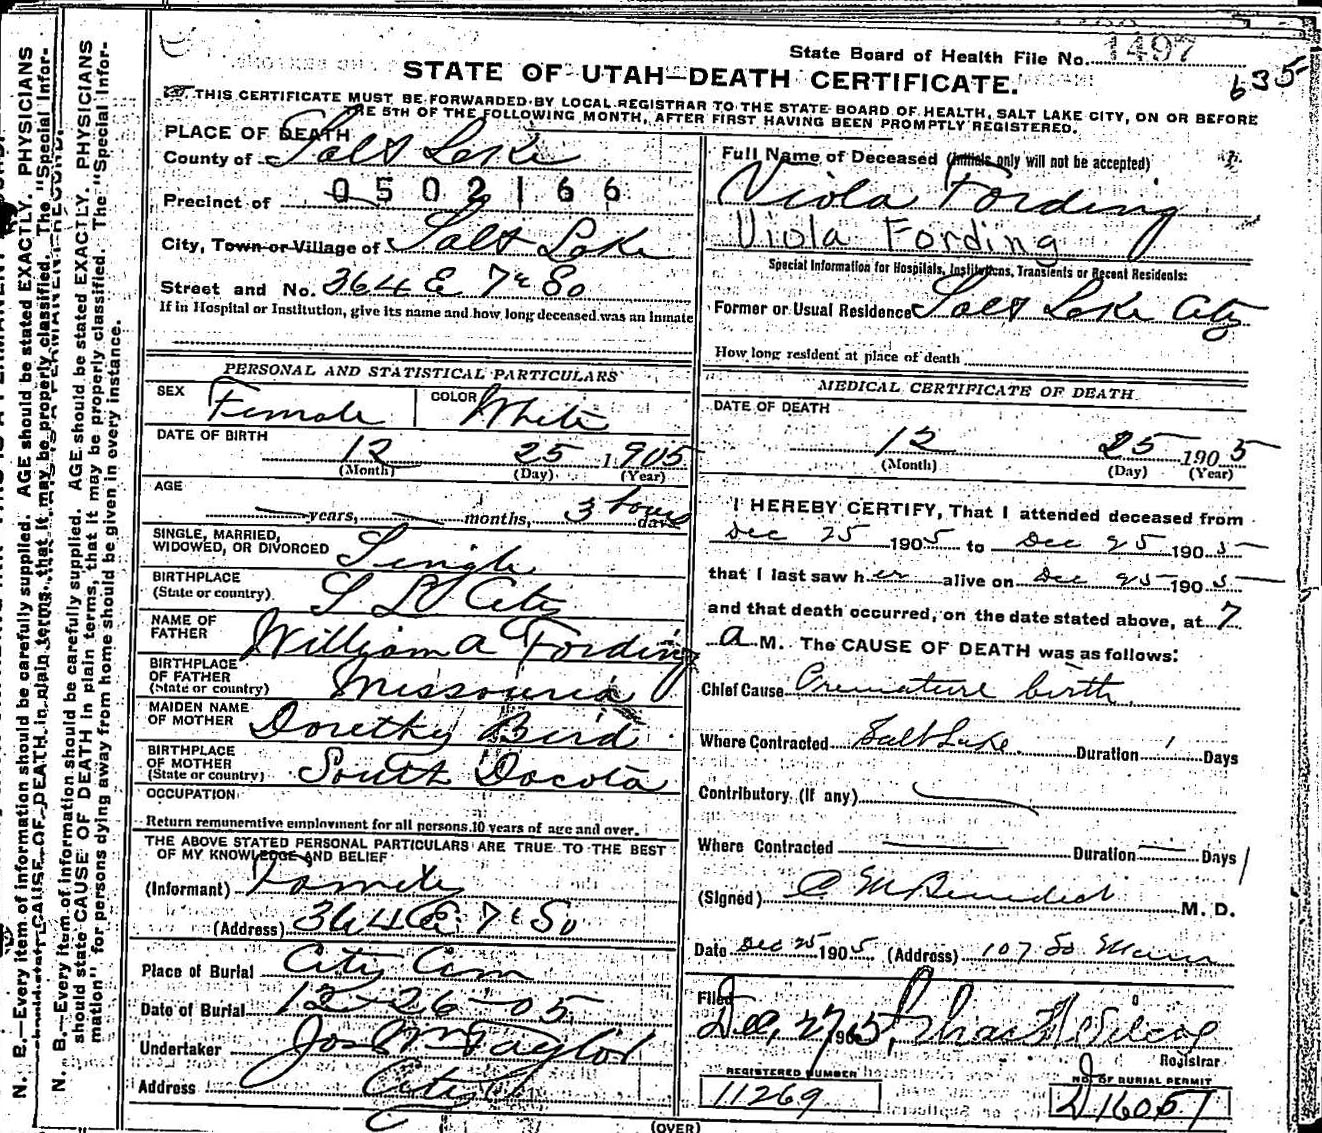 State Board of Health File No. 1497
635
STATE OF UTAH—DEATH CERTIFICATE.
THIS CERTIFICATE MUST BE FORWARDED BY LOCAL REGISTRAR TO THE STATE BOARD OF HEALTH, SALT LAKE CITY, ON OR BEFORE
THE 5TH OF THE FOLLOWING MONTH, AFTER FIRST HAVING BEEN PROMPTLY REGISTERED.
PLACE OF DEATH
County of Salt Lake
Precinct of 0502166
City, Town or Village of Salt Lake
Street and No. 364 E 7th So
If in Hospital or Institution, give its name and how long deceased was an inmate
PERSONAL AND STATISTICAL PARTICULARS
SEX Female COLOR White
DATE OF BIRTH
12 25 1905
(Month) (Day) (Year)
AGE
years, months, 3 hours days
SINGLE, MARRIED,
WIDOWED, OR DIVORCED Single
BIRTHPLACE
(State or country) S L City
NAME OF
FATHER William A Fording
BIRTHPLACE
OF FATHER
(State or country) Missouria
MAIDEN NAME
OF MOTHER Dorethy Bird
BIRTHPLACE
OF MOTHER
(State or country) South Dacota
OCCUPATION
Return remunerative employment for all persons 10 years of age and over.
THE ABOVE STATED PERSONAL PARTICULARS ARE TRUE TO THE BEST
OF MY KNOWLEDGE AND BELIEF
(Informant) Family
(Address) 364 E 7th So
Place of Burial City Cem
Date of Burial 12-26-05
Undertaker Jos Wm Taylor
Address City
Full Name of Deceased (Initials only will not be accepted)
Viola Fording
Viola Fording
Special Information for Hospitals, Institutions, Transients or Recent Residents:
Former or Usual Residence Salt Lake City
How long resident at place of death
MEDICAL CERTIFICATE OF DEATH
DATE OF DEATH
12 25 1905
(Month) (Day) (Year)
I HEREBY CERTIFY, That I attended deceased from
Dec 25 1905 to Dec 25 1905
that I last saw her alive on Dec 25 1905
and that death occurred, on the date stated above, at 7
a M. The CAUSE OF DEATH was as follows:
Chief Cause Premature birth
Where Contracted Salt Lake Duration 1 Days
Contributory (If any)
Where Contracted Duration Days
(Signed) C M Benedict M. D.
Date Dec 25 1905 (Address) 107 So Main
Filed
Dec, 27, 1905,
Registrar
REGISTERED NUMBER
11269
NO. OF BURIAL PERMIT
D 16057
(OVER)
N. B.—Every item of information should be carefully supplied. AGE should be stated EXACTLY. PHYSICIANS
should state CAUSE OF DEATH in plain terms, that it may be properly classified. The "Special Infor-
mation" for persons dying away from home should be given in every instance.